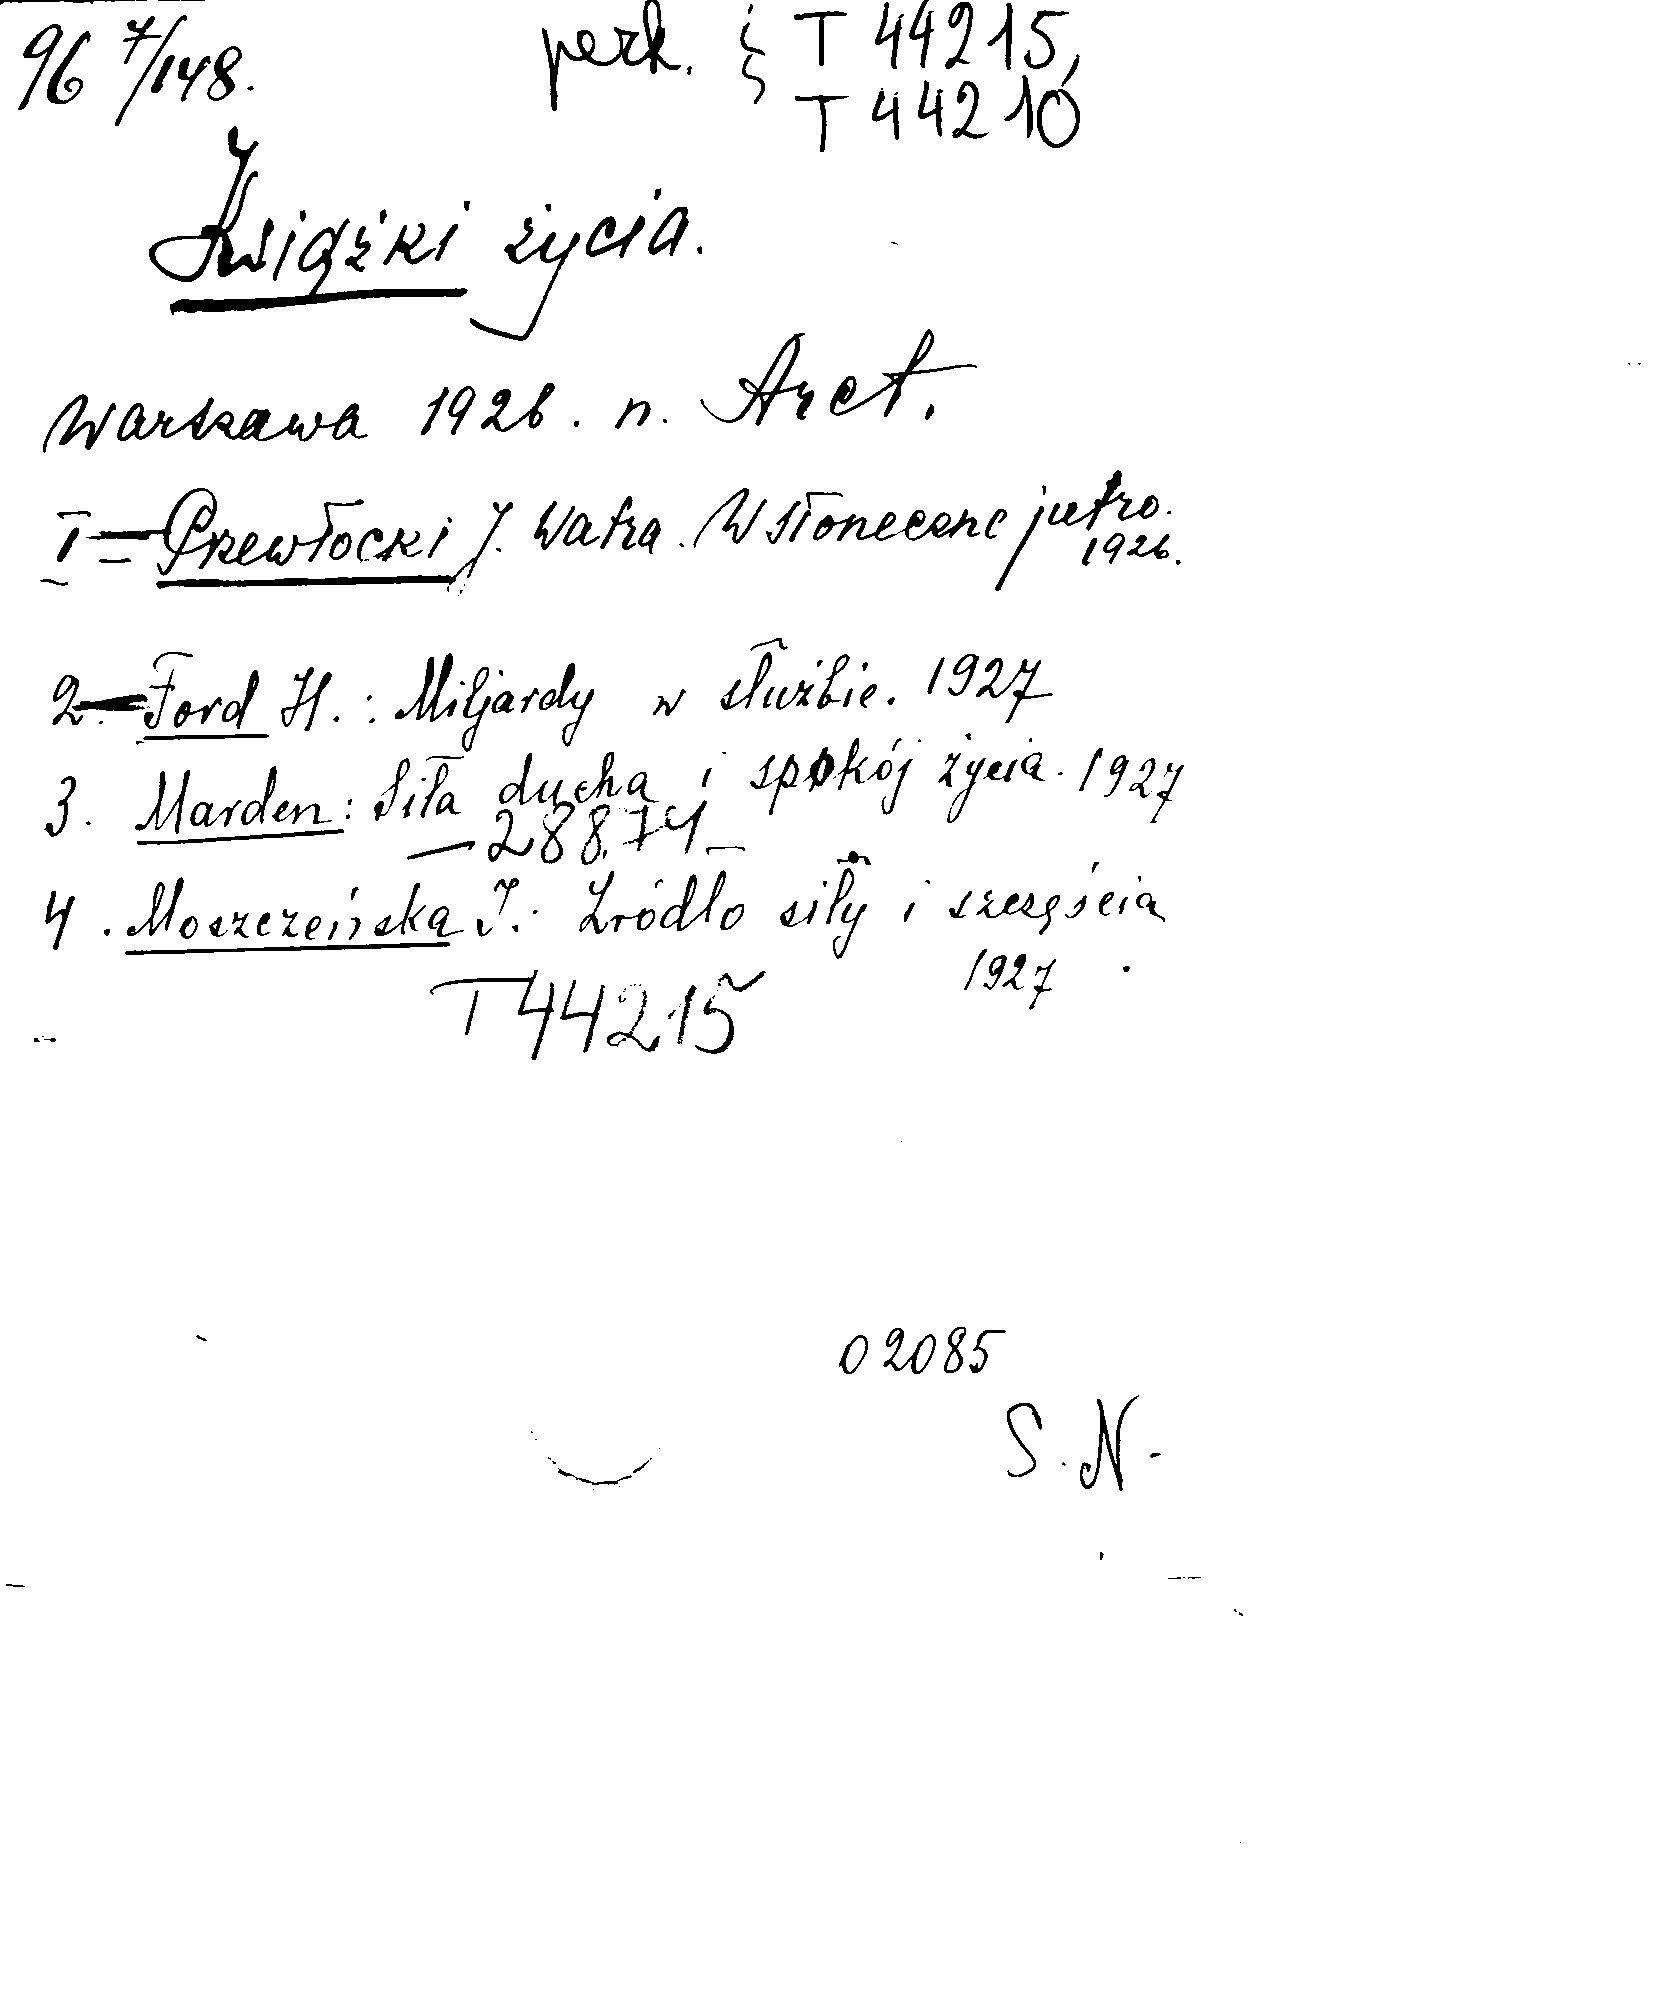 96 7/148. perk. T 44215,
T 44210
Książki życia.
Warszawa 1926. n. Arct.
1 – Przewłocki J. Watra. W słoneczne jutro.
1926.
2. Ford H. : Miljardy w służbie. 1927
3. Marden: Siła ducha i spokój życia. 1927
– 288.74
4. Moszczeńska I.: Źródło siły i szczęścia
1927.
T 44215
02085
S. N.